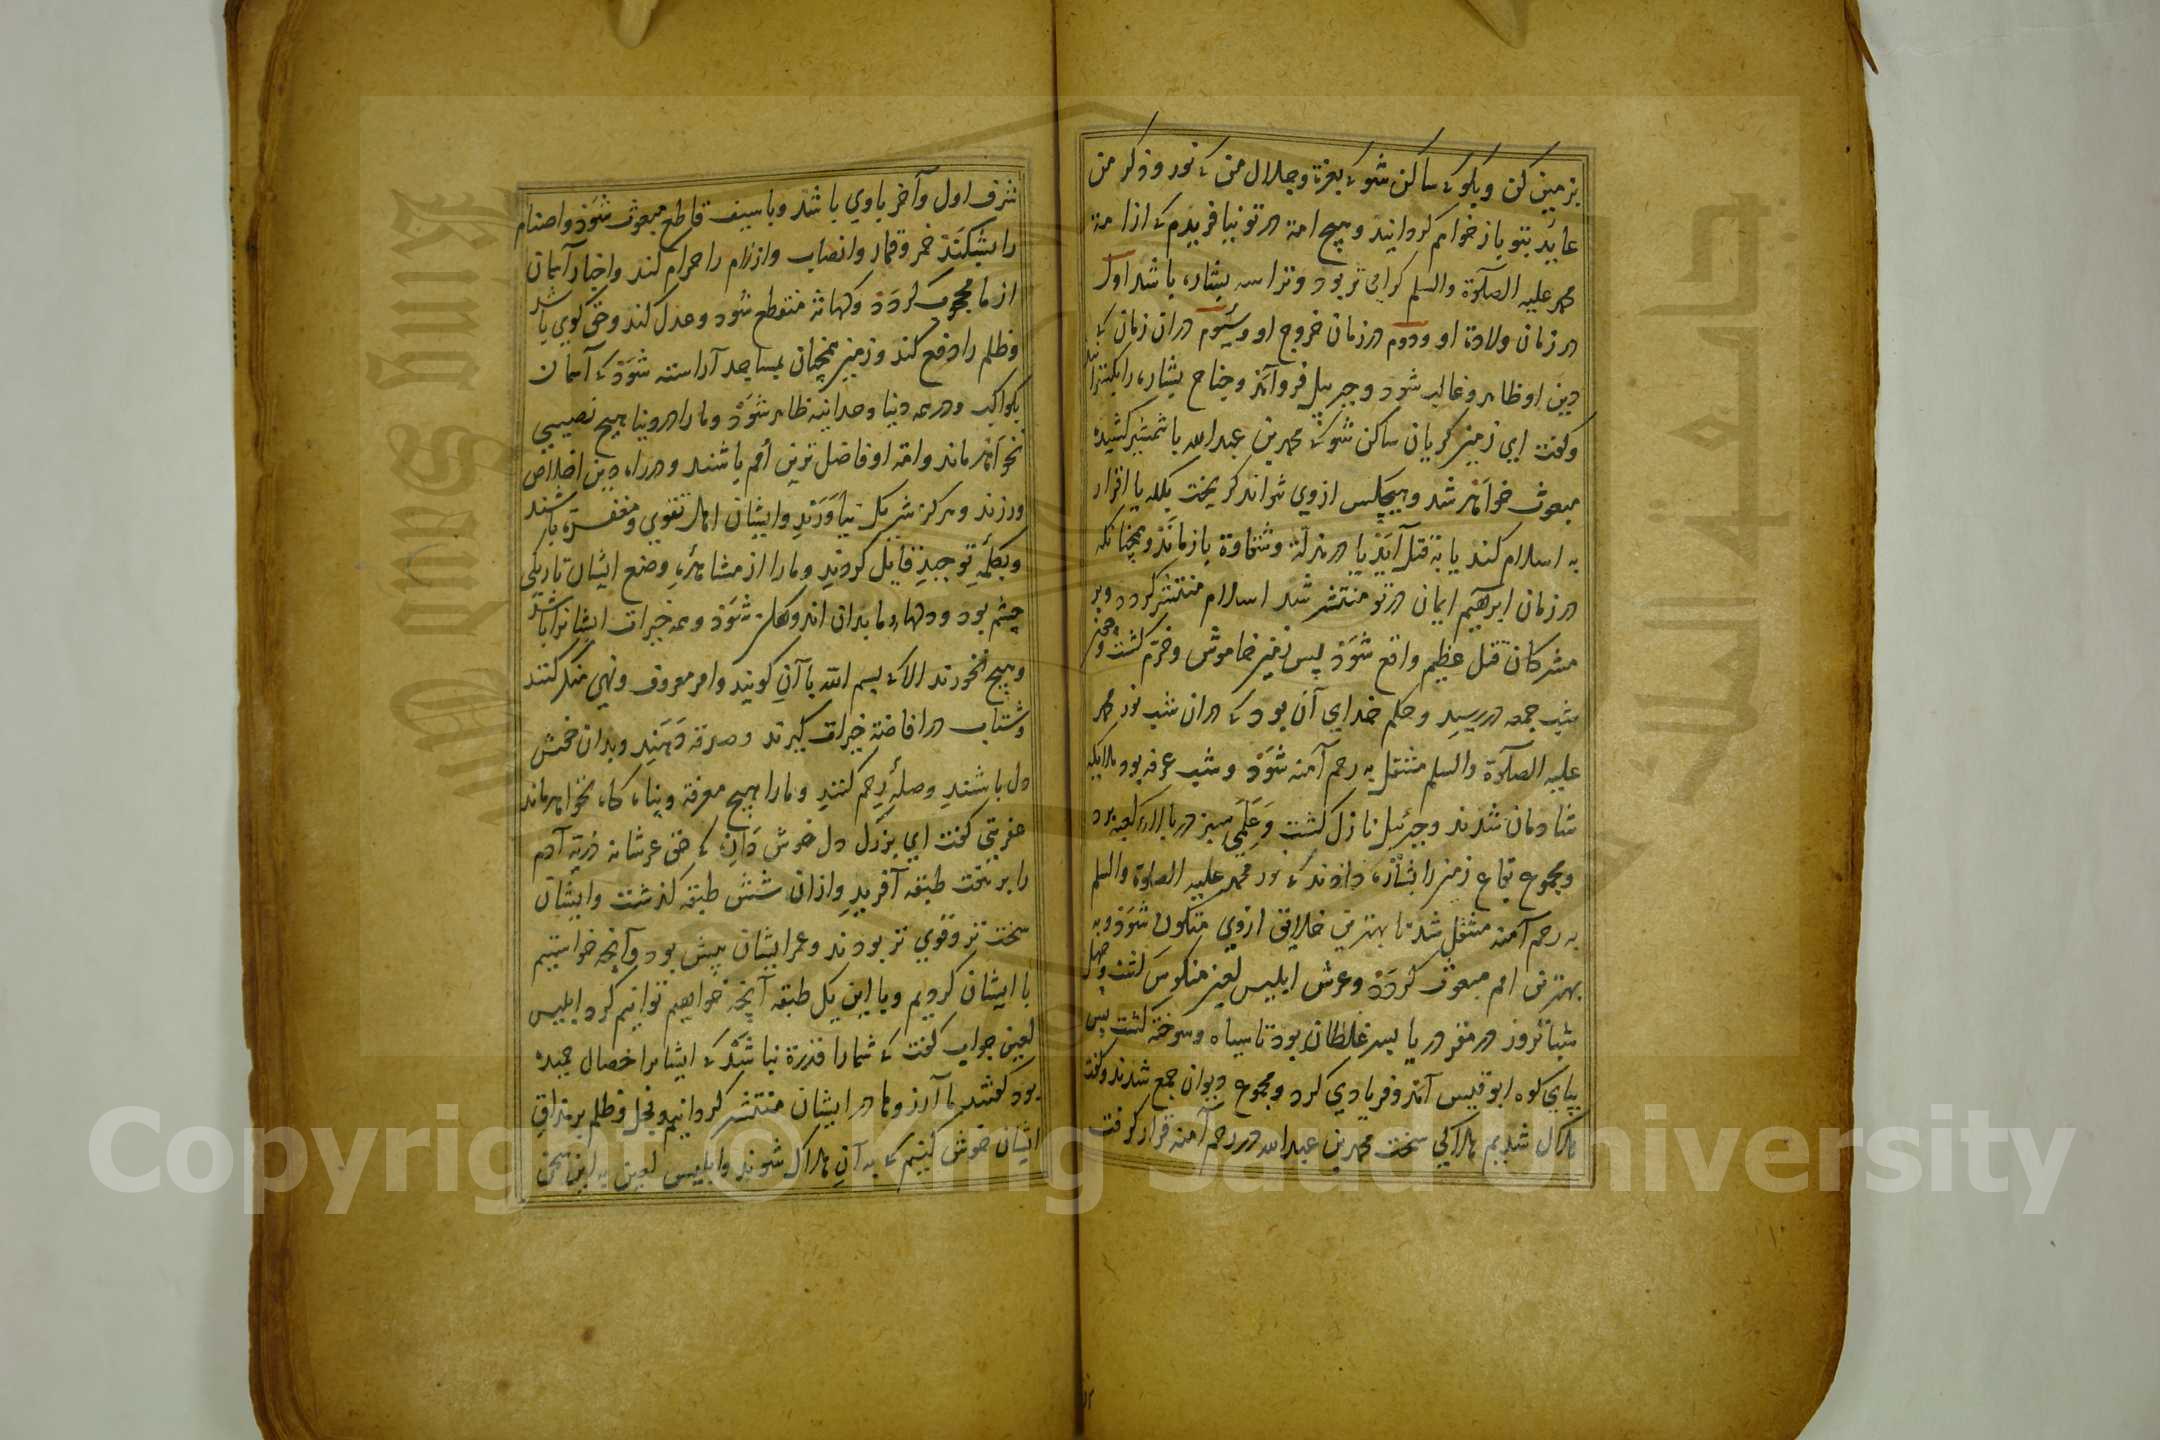 بزمین کن و بگو که ساکن شو که بعزة وجلال من که نور و ذکر من
عائد بتو باز خواهم کردانید و هیچ امة در تو نیافریدم که از امة
محمد علیه الصلوة والسلم کرامی تر بود و ترا سه بشارت باشد اول
در زمان ولادة او ودوم در زمان خروج او وسیوم دران زمان که
دین او ظاهر و غالب شود و جبرییل فروآمد و جناح بشارت را بکسترانید
و کفت ای زمین کریان ساکن شو که محمد بن عبد الله با شمشیر کشیده
مبعوث خواهد شد و هیچکس ازوی نتواند کریخت بلکه یا اقرار
به اسلام کند یا به قتل آید یا در مذلة و شقاوة بازماند و همچنانکه
در زمان ابرهیم ایمان در تو منتشر شد اسلام منتشر کردد و بر
مشرکان قتل عظیم واقع شود پس زمین خاموش و خرم کشت و چون
شب جمعه در رسید و حکم خدای آن بود که دران شب نور محمد
علیه الصلوة والسلم منتقل به رحم آمنه شود و شب عرفه بود ملایکه
شادمان شدند و جبرئیل نازل کشت و علمی سبز در بالاء کعبه برد
و مجموع بقاع زمین را بشارت دادند که نور محمد علیه الصلوة والسلم
به رحم آمنه منتقل شد تا بهترین خلایق ازوی متکون شود و به
بهترین امم مبعوث کردد و عرش ابلیس لعین منکوس کشت و چهل
شبانروز در قعر دریا بسر غلطان بود تا سیاه و سوخته کشت پس
بپای کوه ابو قبیس آمد و فریادی کرد و مجموع دیوان جمع شدند و کفت
هلاک شدیم هلاکی سخت محمد بن عبد الله در رحم آمنه قرار کرفت
شرف اول و آخر با وی باشد و با سیف قاطع مبعوث شود و اصنام
را بشکند خمر و قمار و انصاب و ازلام را حرام کند و اخبار آسمان
از ما محجوب کردد و کهانه منقطع شود و عدل کند و حق کوی باشد
و ظلم را دفع کند و زمین همچنان بمساجد آراسته شود که آسمان
بکواکب و در همه دنیا وحدانیة ظاهر شود و ما را در دنیا هیچ نصیبی
نخواهد ماند و امة او فاضل ترین امم باشند و در راه دین اخلاص
ورزند و هرکز شریک نیاورند و ایشان اهل تقوی و مغفرت باشند
و بکلمه توحید قایل کردند و ما را از مشاهده وضع ایشان تاریکی
چشم بود و دلهاء ما بدان اندوهکن شود و همه خیرات ایشانرا باشد
و هیچ نخورند الا که بسم الله با آن کویند و امر معروف و نهی منکر کنند
و شتاب در افاضة خیرات کیرند و صدقه دهند و بدان خوش
دل باشند و صله رحم کنند و ما را هیچ معرفة و پناه کاه نخواهد ماند
عفریتی کفت ای بزرک دل خوش دار که حق عز شانه ذریة آدم
را بر هفت طبقه آفرید و ازان شش طبقه کذشت و ایشان
سخت تر و قوی تر بودند و عمر ایشان بیش بود و آنچه خواستیم
با ایشان کردیم و با این یک طبقه آنچه خواهیم توانیم کرد ابلیس
لعین جواب کفت که شما را قدرة نباشد که ایشانرا خصال حمیده
بود کفتند ما آرزوها در ایشان منتشر کردانیم و بخل و ظلم بر مذاق
ایشان خوش کنیم که به آن هلاک شوند و ابلیس لعین به این سخن
Copyright © King Saud University
King Saud University
جامعة الملك سعود